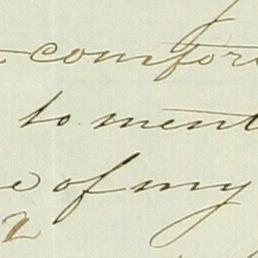 comfor
to ment
of my